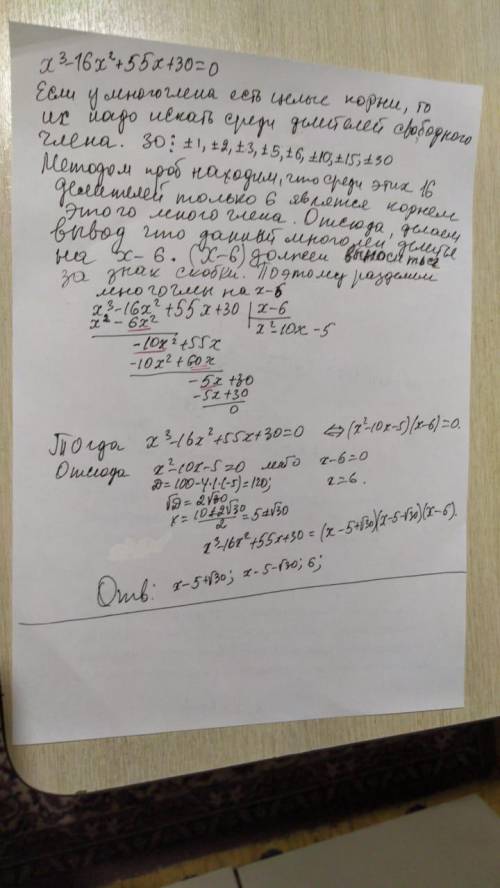 x³-16x²+55x+30=0
Если у многочлена есть целые корни, то
их надо искать среди делителей свободного
члена. 30: ±1, ±2, ±3, ±5, ±6, ±10, ±15, ±30
Методом проб находим, что среди этих 16
делителей только 6 является корнем
этого многочлена. Отсюда, делаем
вывод что данный многочлен
на x-6. (x-6) должен выноситься
за знак скобки. Поэтому разделим
многочлены на x-6
x³-16x²+55x+30 | x-6
x³-6x² x²-10x-5
-10x²+55x
-10x²+60x
-5x+30
-5x+30
0
Тогда x³-16x²+55x+30=0 ⇔ (x²-10x-5)(x-6)=0.
Отсюда x²-10x-5=0 либо x-6=0
D=100-4·1·(-5)=120; x=6.
√D=2√30
x=10±2√30/2=5±√30
x³-16x²+55x+30=(x-5+√30)(x-5-√30)(x-6).
Отв: x-5+√30; x-5-√30; 6;